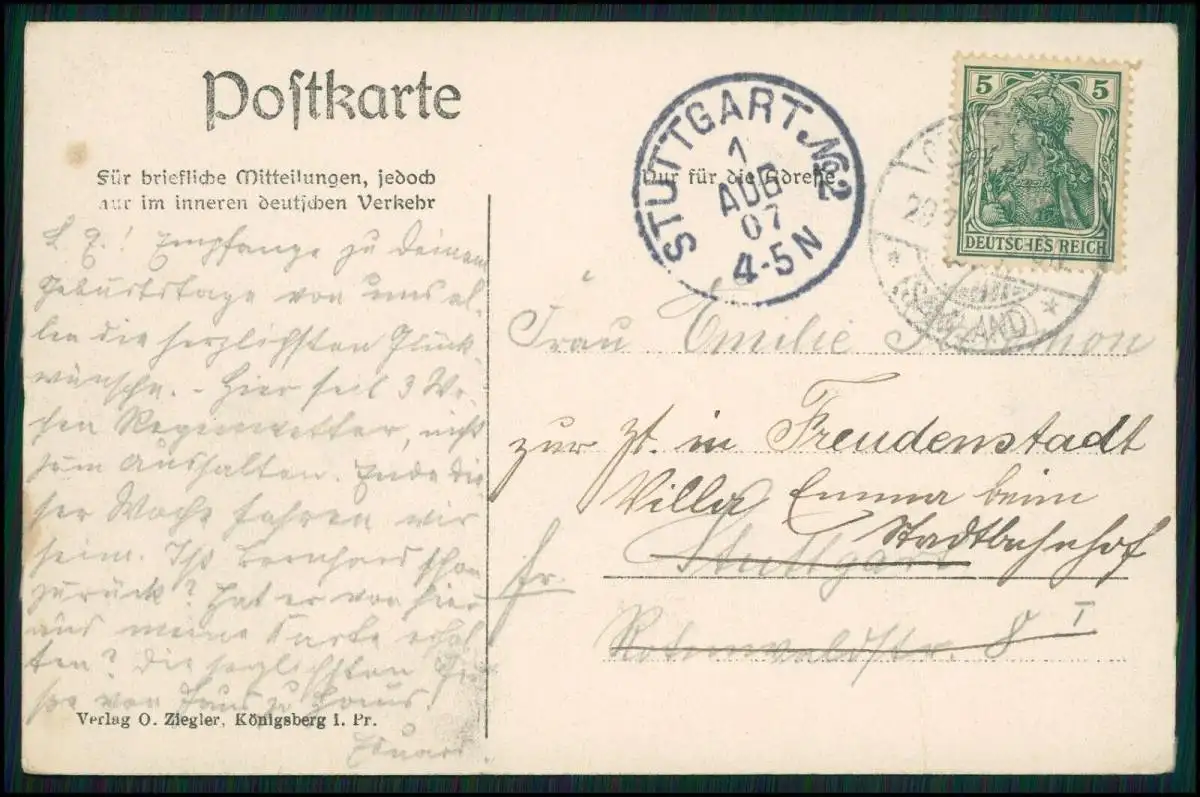 Postkarte
Für briefliche Mitteilungen, jedoch
nur im inneren deutschen Verkehr
L. E.! Empfange zu Deinem
Geburtstage von uns al-
len die herzlichsten Glück-
wünsche. - Hier seit 3 Wo-
chen Regenwetter, nicht
zum Aushalten. Ende die-
ser Woche fahren wir
heim. Ist Bernhard schon
zurück? Hat er von hier
aus meine Karte erhal-
ten? Die herzlichsten Grü-
sse von Haus zu Haus!
Eduard.
Verlag O. Ziegler, Königsberg i. Pr.
STUTTGART. No 2
1
AUG
07
4-5 N
Nur für die Adresse
5 5
DEUTSCHES REICH
(SAMLAND)
Frau Emilie
zur Zt. in Freudenstadt
Villa Emma beim
Stadtbahnhof
Stuttgart
fr.
Rotenwaldstr. 8 I